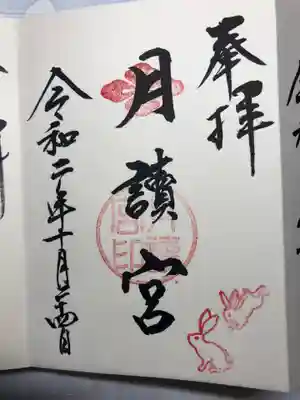 奉拝
月讀宮
令和二年十月二十四日